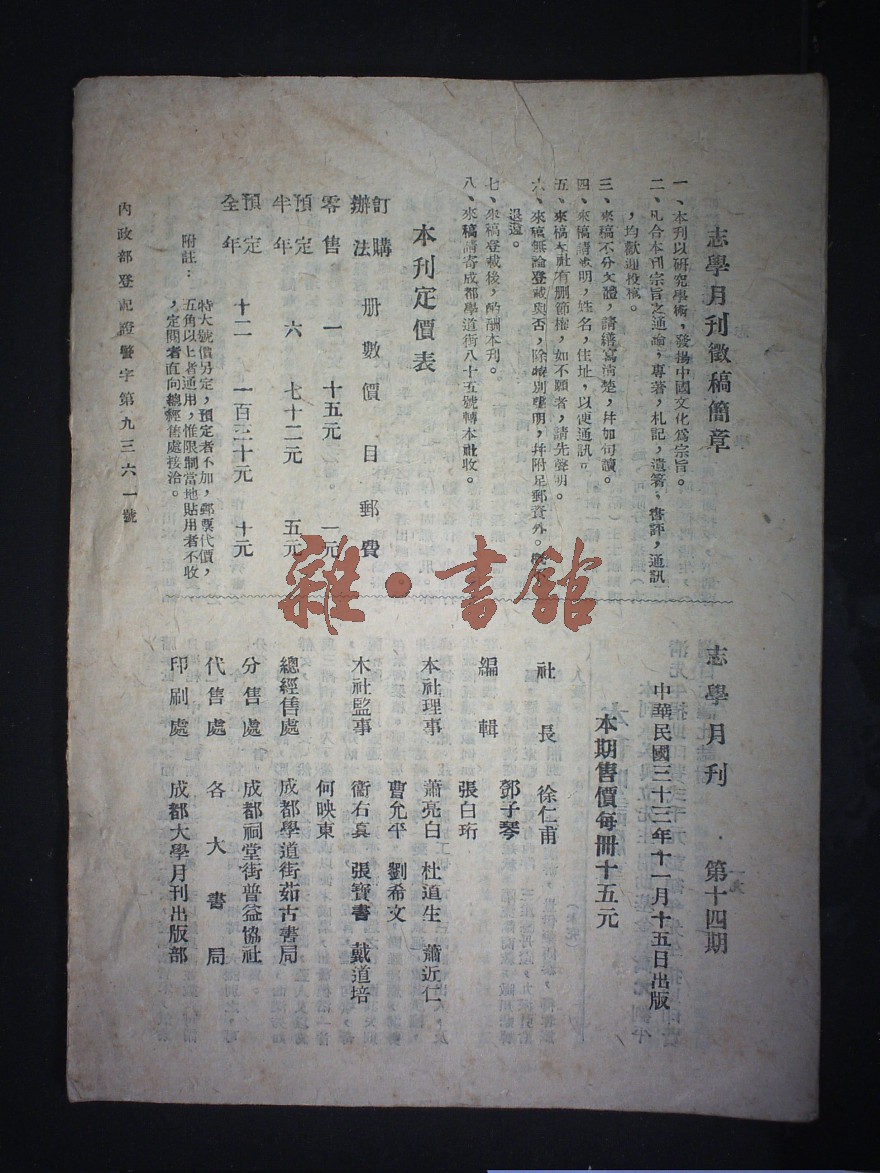 志學月刊徵稿簡章
一、本刊以研究學術，發揚中國文化為宗旨。
二、凡合本刊宗旨之通論，專著，札記，遺箸，書評，通訊
，均歡迎投稿。
三、來稿不分文體，請繕寫淸楚，幷加句讀。
四、來稿請載明，姓名，住址，以便通訊。
五、來稿本社有删節權，如不願者，請先聲明。
六、來稿無論登載與否，除特別聲明，幷附足郵資外。
退還。
七、來稿登載後，酌酬本刊。
八、來稿請寄成都學道街八十五號轉本社收。
本刊定價表
訂購辦法 册數 價目 郵費
零售 一 十五元 一元
預定半年 六 七十二元 五元
預定全年 十二 一百三十元 十元
附註：
特大號價另定，預定者不加，郵票代價，
五角以上者通用，惟限制當地貼用者不收
，定閱者直向總經售處接洽。
內政部登記證警字第九三六一號
志學月刊 第十四期
中華民國三十三年十一月十五日出版
本期售價每冊十五元
社長 徐仁甫
編輯 鄧子琴
張白珩
本社理事 蕭亮白 杜道生 蕭近仁
曹允平 劉希文
本社監事 衞右眞 張寶書 戴道培
何映東
總經售處 成都學道街茹古書局
分售處 成都祠堂街普益協社
代售處 各大書局
印刷處 成都大學月刊出版部
雜·書館